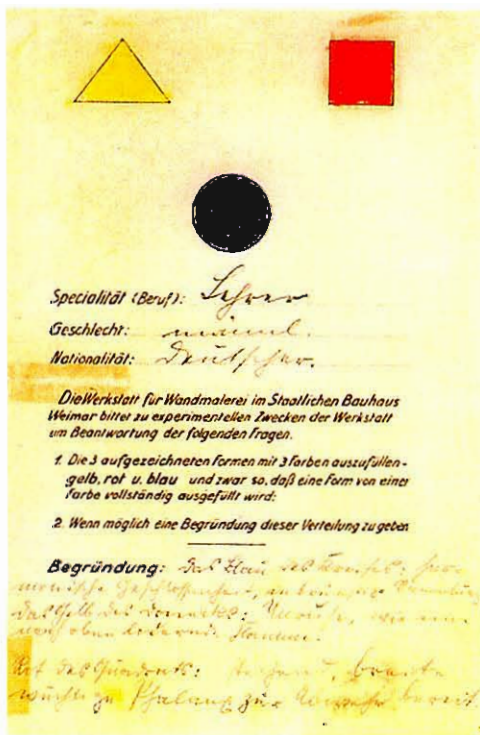 Specialität (Beruf): Lehrer
Geschlecht: männl.
Nationalität: Deutscher.
Die Werkstatt für Wandmalerei im Staatlichen Bauhaus
Weimar bittet zu experimentellen Zwecken der Werkstatt
um Beantwortung der folgenden Fragen.
1. Die 3 aufgezeichneten Formen mit 3 Farben auszufüllen-
gelb, rot u. blau und zwar so, daß eine Form von einer
Farbe vollständig ausgefüllt wird:
2. Wenn möglich eine Begründung dieser Verteilung zu geben
Begründung: Das Blau des Kreises: har-
monische Geschlossenheit,
das Gelb des Dreiecks: Unruhe, wie eine
nach oben lodernde Flamme.
Rot des Quadrats: stehend, breite
wuchtige Phalanx zur Abwehr bereit.